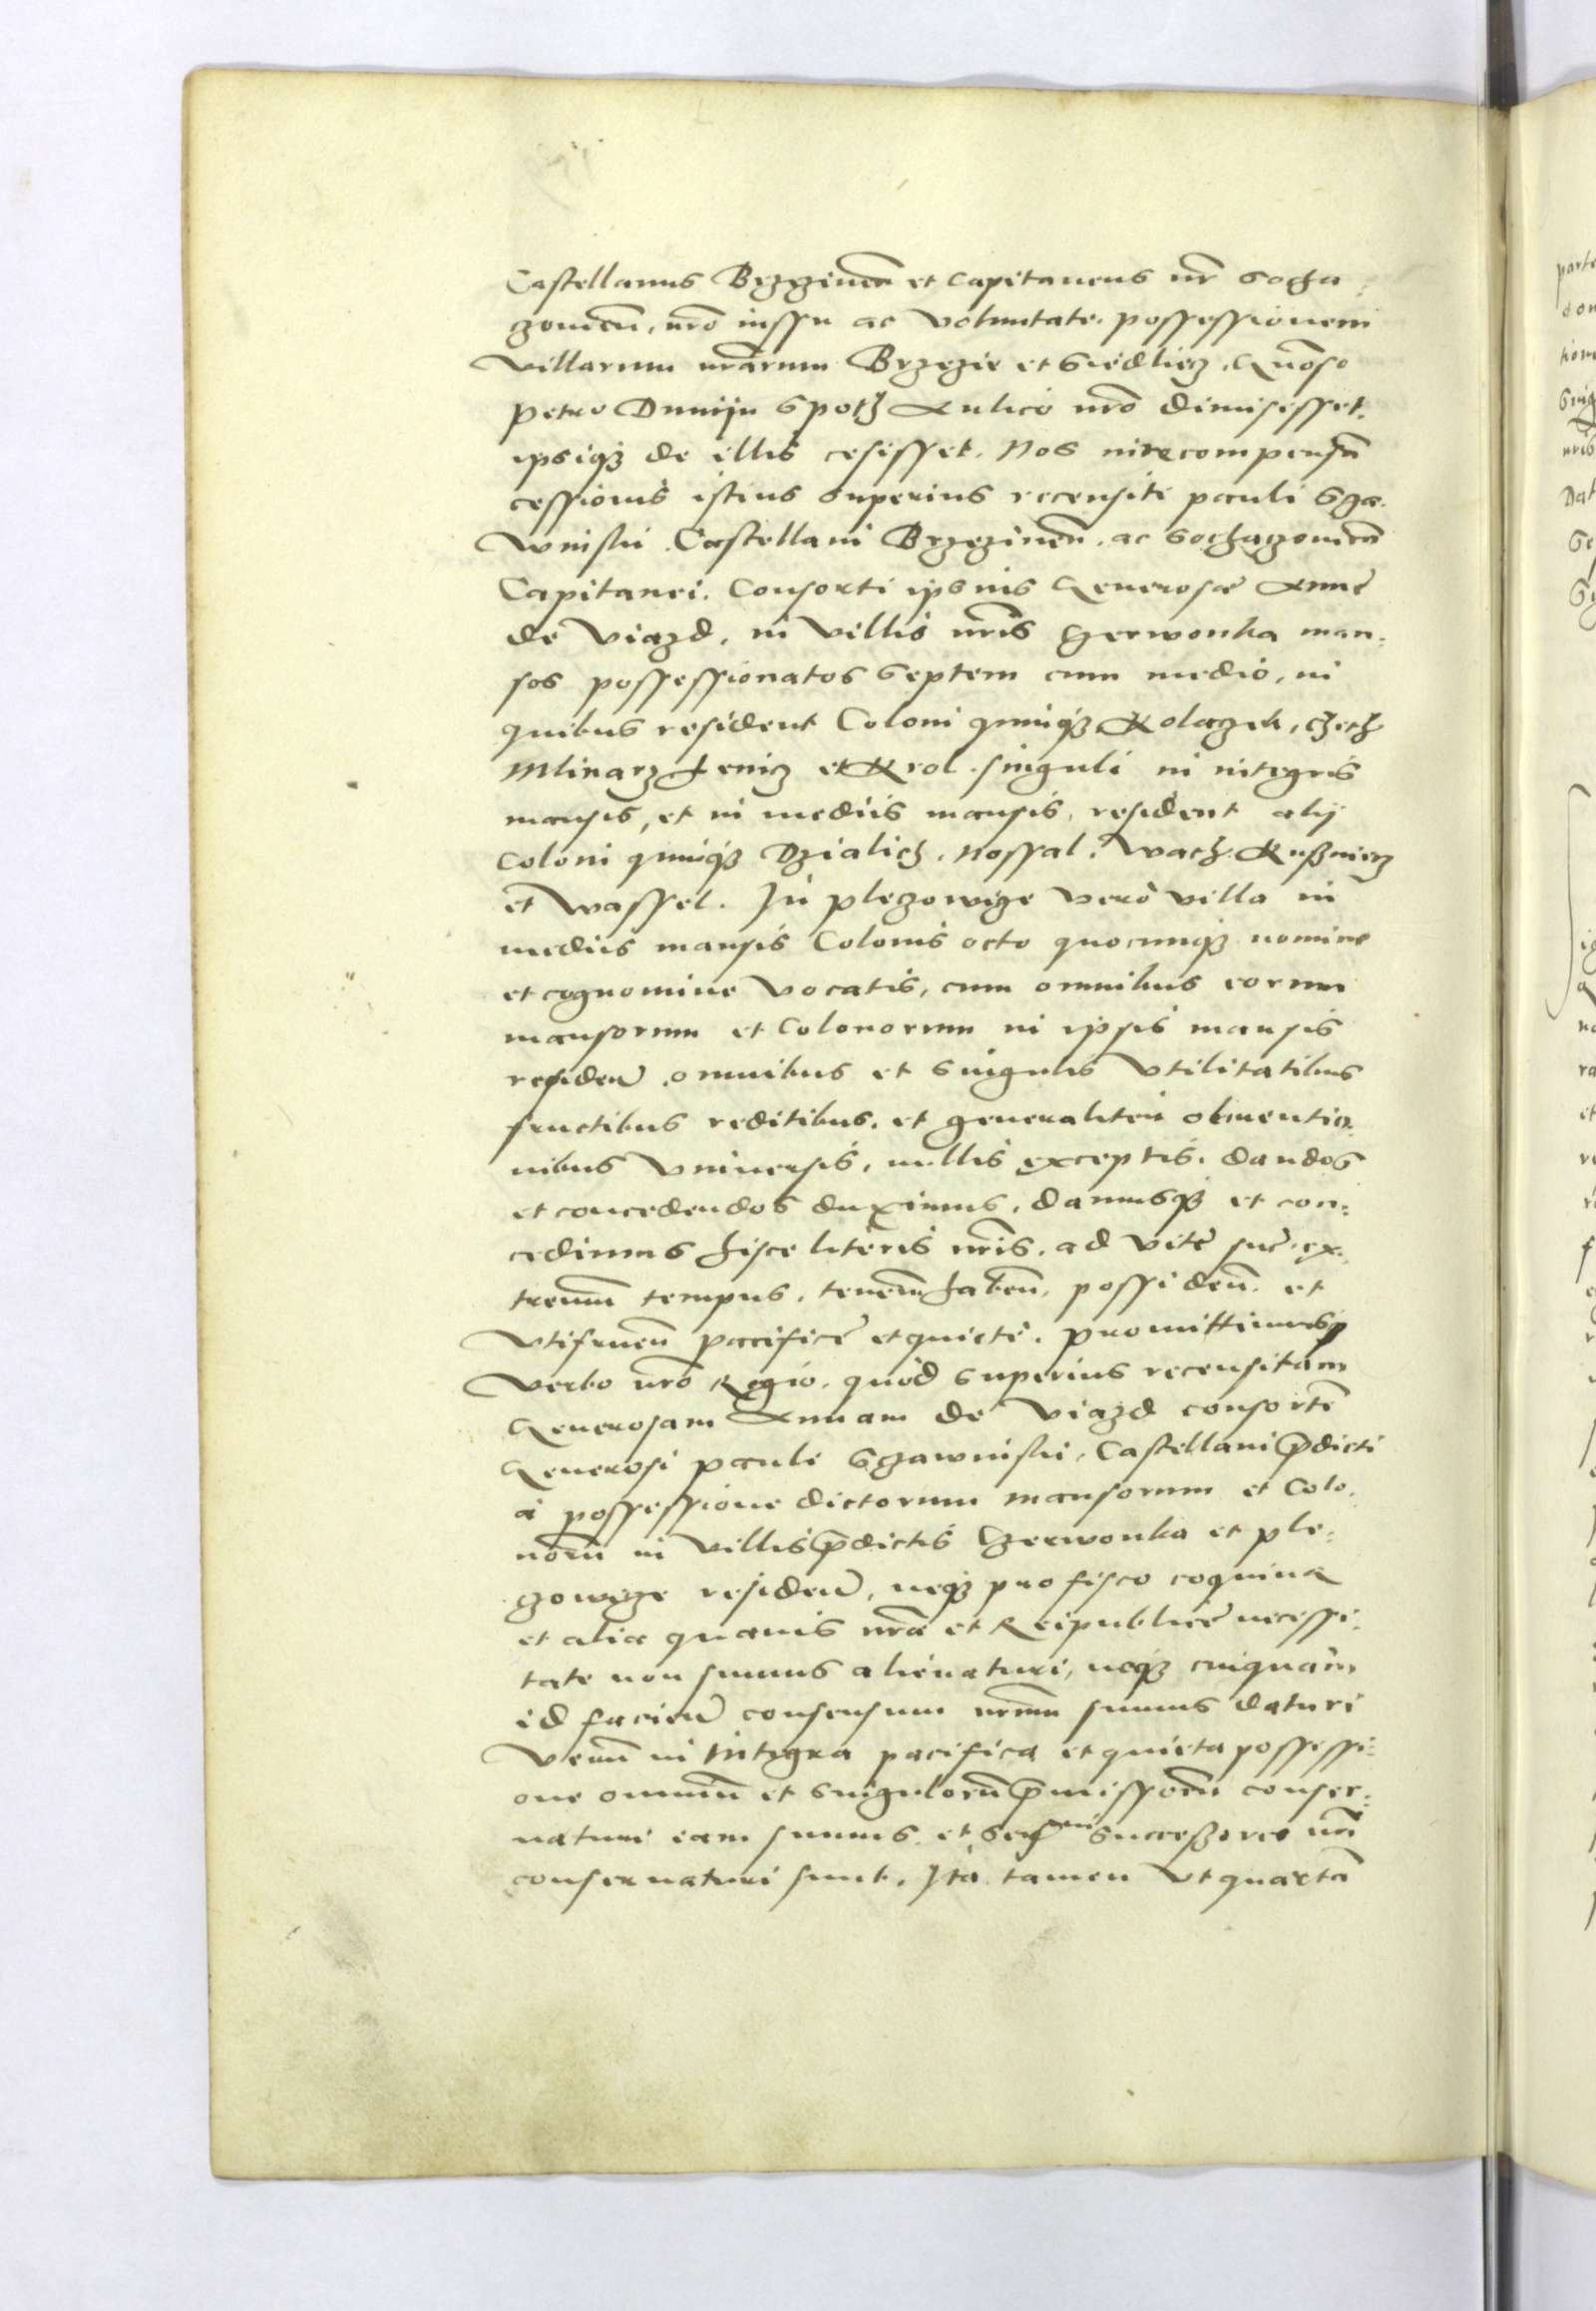 Castellanus Brzezinen̄ et Capitaneus nr̄ Socha-
czouien̄, nr̄o iussu ac voluntate, possessionem
villarum nr̄arum Brzezie et Siedliecz, Gn̄oso
Petro Duniin Spoth Aulico nr̄o dimisisset,
ipsiqȝ de illis cesisset. Nos in recompensam̄
cessionis istius superius recensiti Pauli Sgza-
wiński Castellani Brzezinen̄, ac Sochaczouien̄
Capitanei, Consorti ipsius Generosæ Annę
de Viazd, in villis nr̄is Czerwonka man-
sos possessionatos septem cum medio, in
quibus resident Coloni quinqȝ Kolaczek, Czech
Mlinarz Jenicz et Krol singuli in integris
mansis, et in mediis mansis, resident alij
Coloni quinqȝ Dzialich, Nossal, Wach, Kußnierz
et Wassel. In Pleczowige verò villa in
mediis mansis Colonis octo quocunqȝ nomine
et cognomine vocatis, cum omnibus eorum
mansorum et Colonorum in ipsis mansis
residen̄, omnibus et singulis vtilitatibus
fructibus reditibus, et generaliter obuentio-
nibus vniuersis, nullis exceptis, dandos
et concedendos duximus, damusqȝ et con-
cedimus hisce literis nr̄is, ad vitę suę ex-
tremum̄ tempus, tenen̄ haben̄, possiden̄, et
vtifruen̄ pacificè et quietè. Promittimusqȝ
Verbo nr̄o Regio, quòd superius recensitam
Generosam Annam de Viazd consortē
Generosi Pauli Sgzawiński, Castellani p̄dicti
à possessione dictorum mansorum et Colo-
norū in villis p̄dictis Czerwonka et Ple-
czowige residen̄, neqȝ pro fisco coquina
et alia quauis nr̄a et Reipublicę necessi-
tate non sumus alienaturi, neqȝ cuiquam
id facien̄ consensum nr̄um sumus daturi
Verum̄ in integra pacifica et quieta possessi-
one omniū et singulorū p̄missorū conser-
uaturi eam sumus, et Serᵐⁱ successores nr̄i
conseruaturi sunt. Ita tamen vt quartā